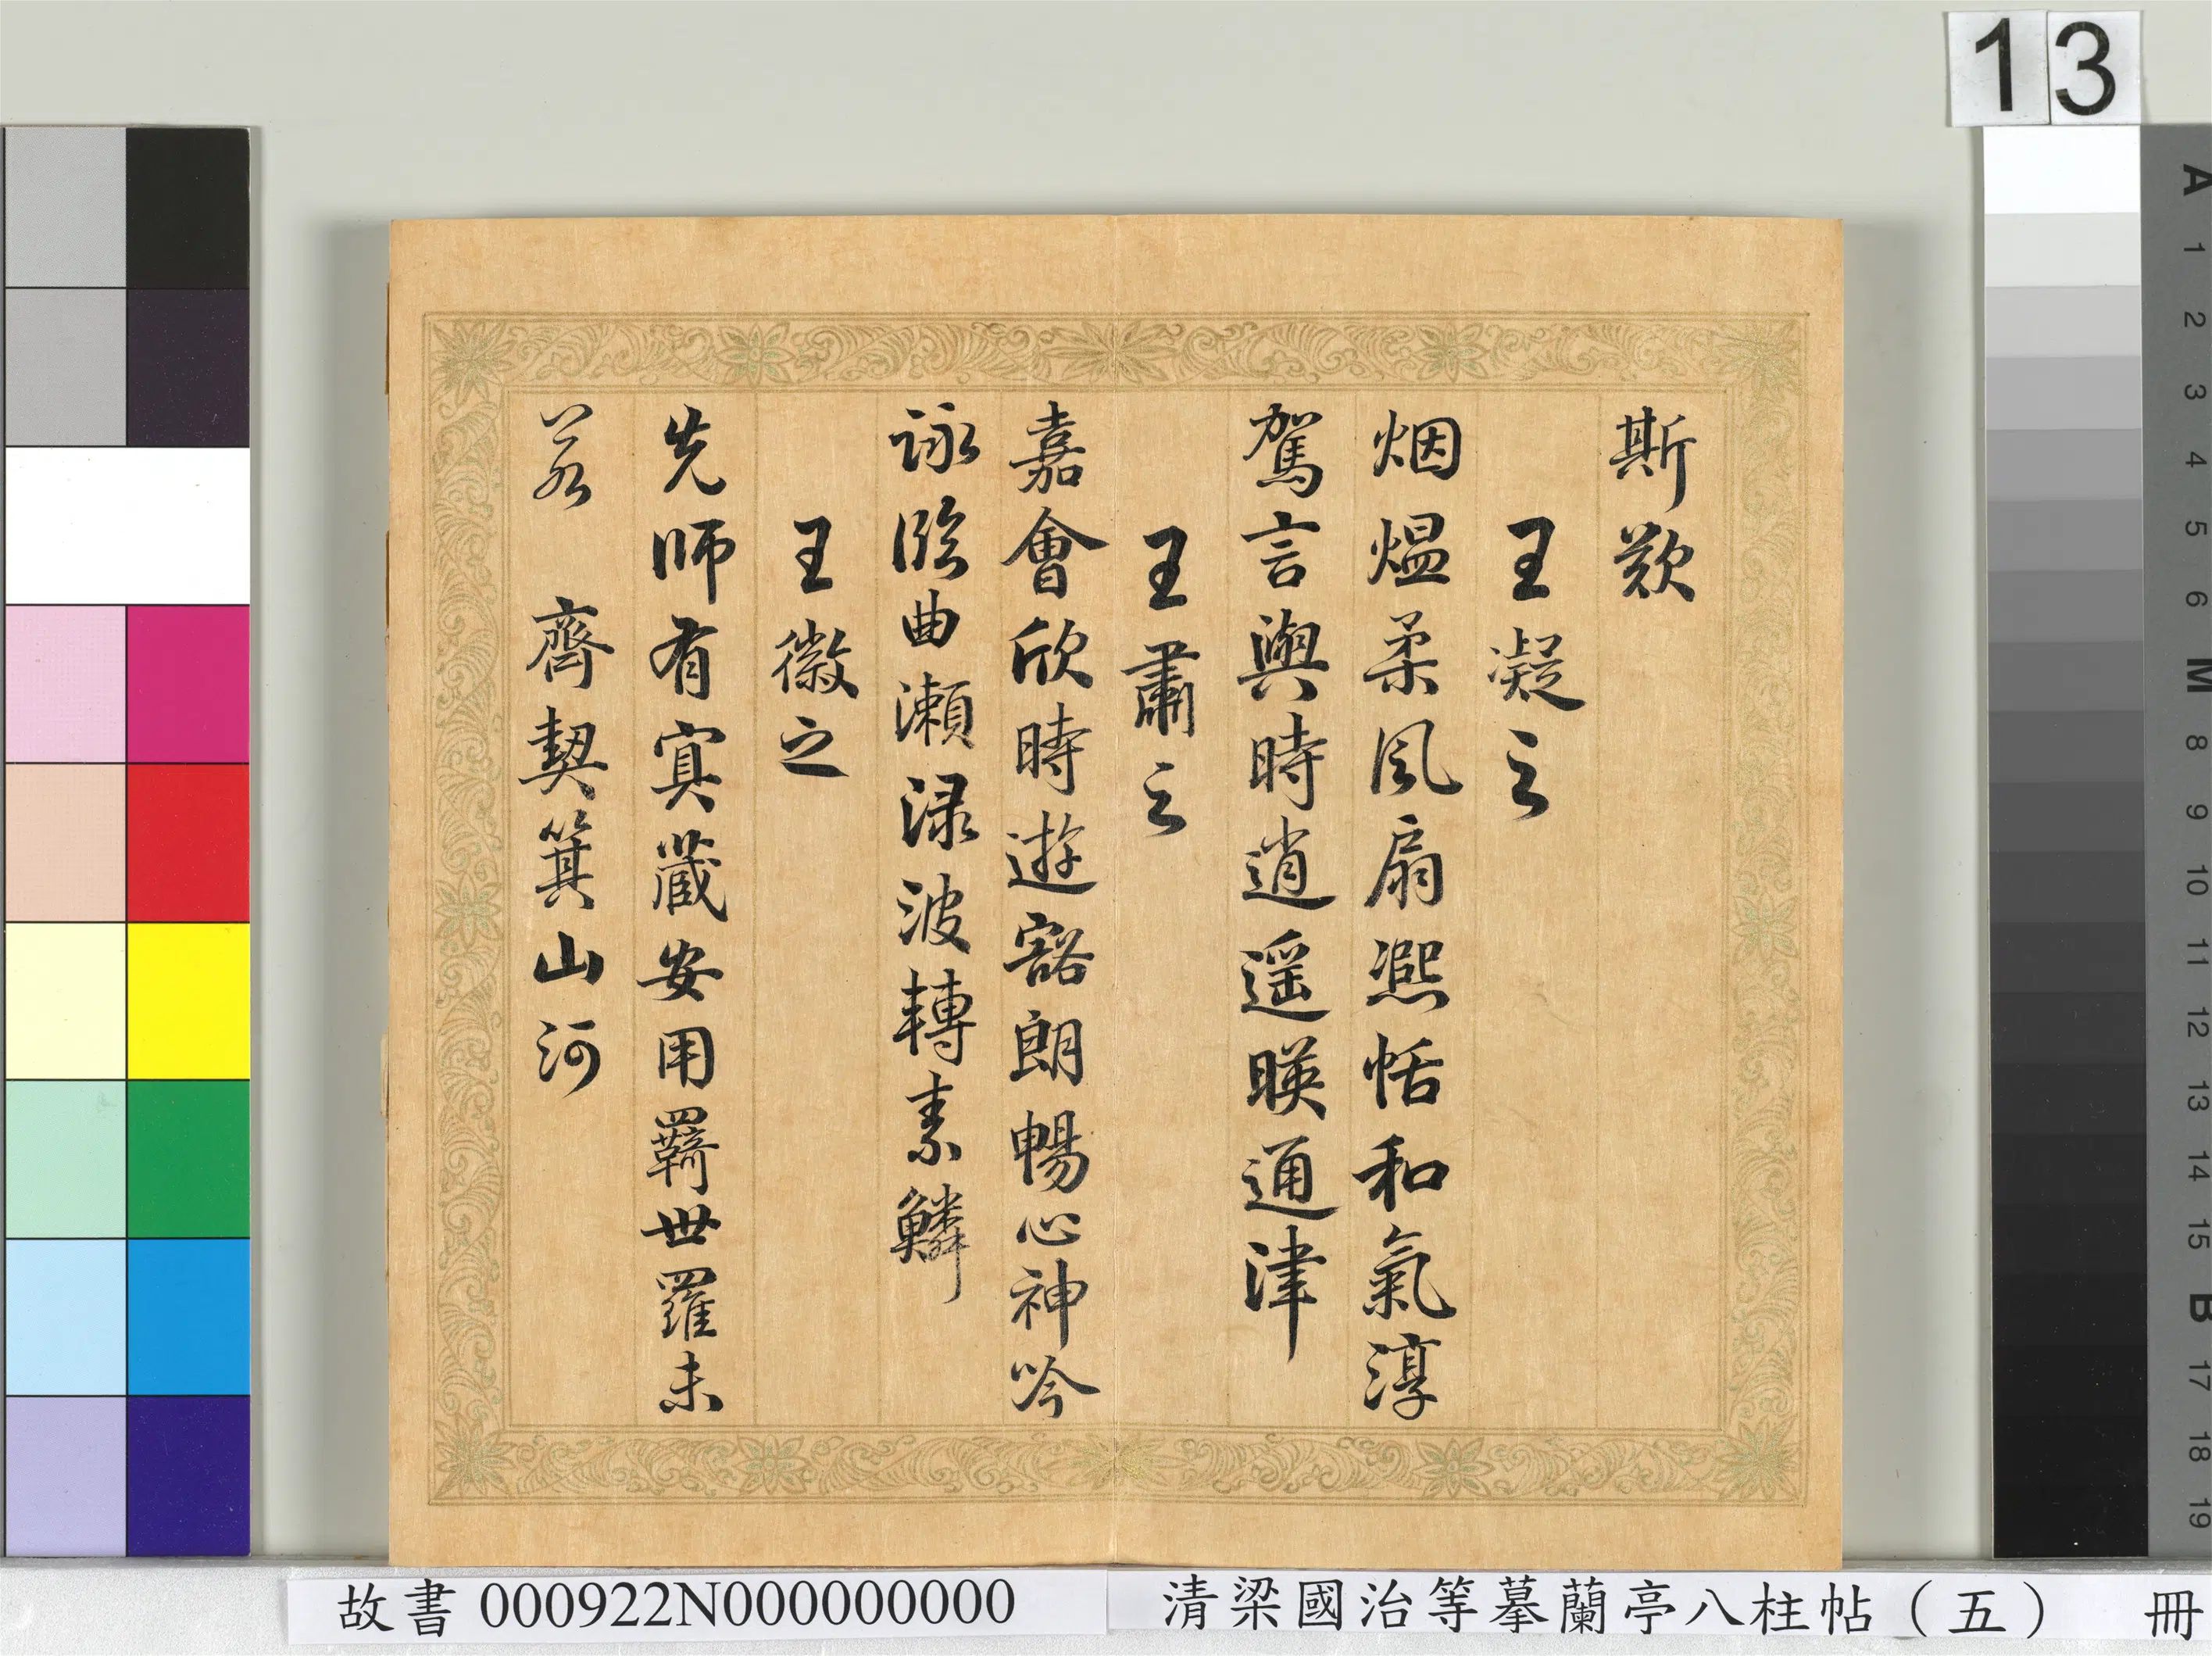 13
斯歎
王凝之
烟熅柔風扇凞恬和氣淳
駕言興時逍遥暎通津
王肅之
嘉會欣時遊豁朗暢心神吟
詠臨曲瀬渌波轉素鱗
王徽之
先師有冥藏安用羇世羅未
若 齊契箕山河
A 1 2 3 4 5 6 M 8 9 10 11 12 13 14 15 B 17 18 19
故書 000922N000000000
清梁國治等摹蘭亭八柱帖（五） 冊